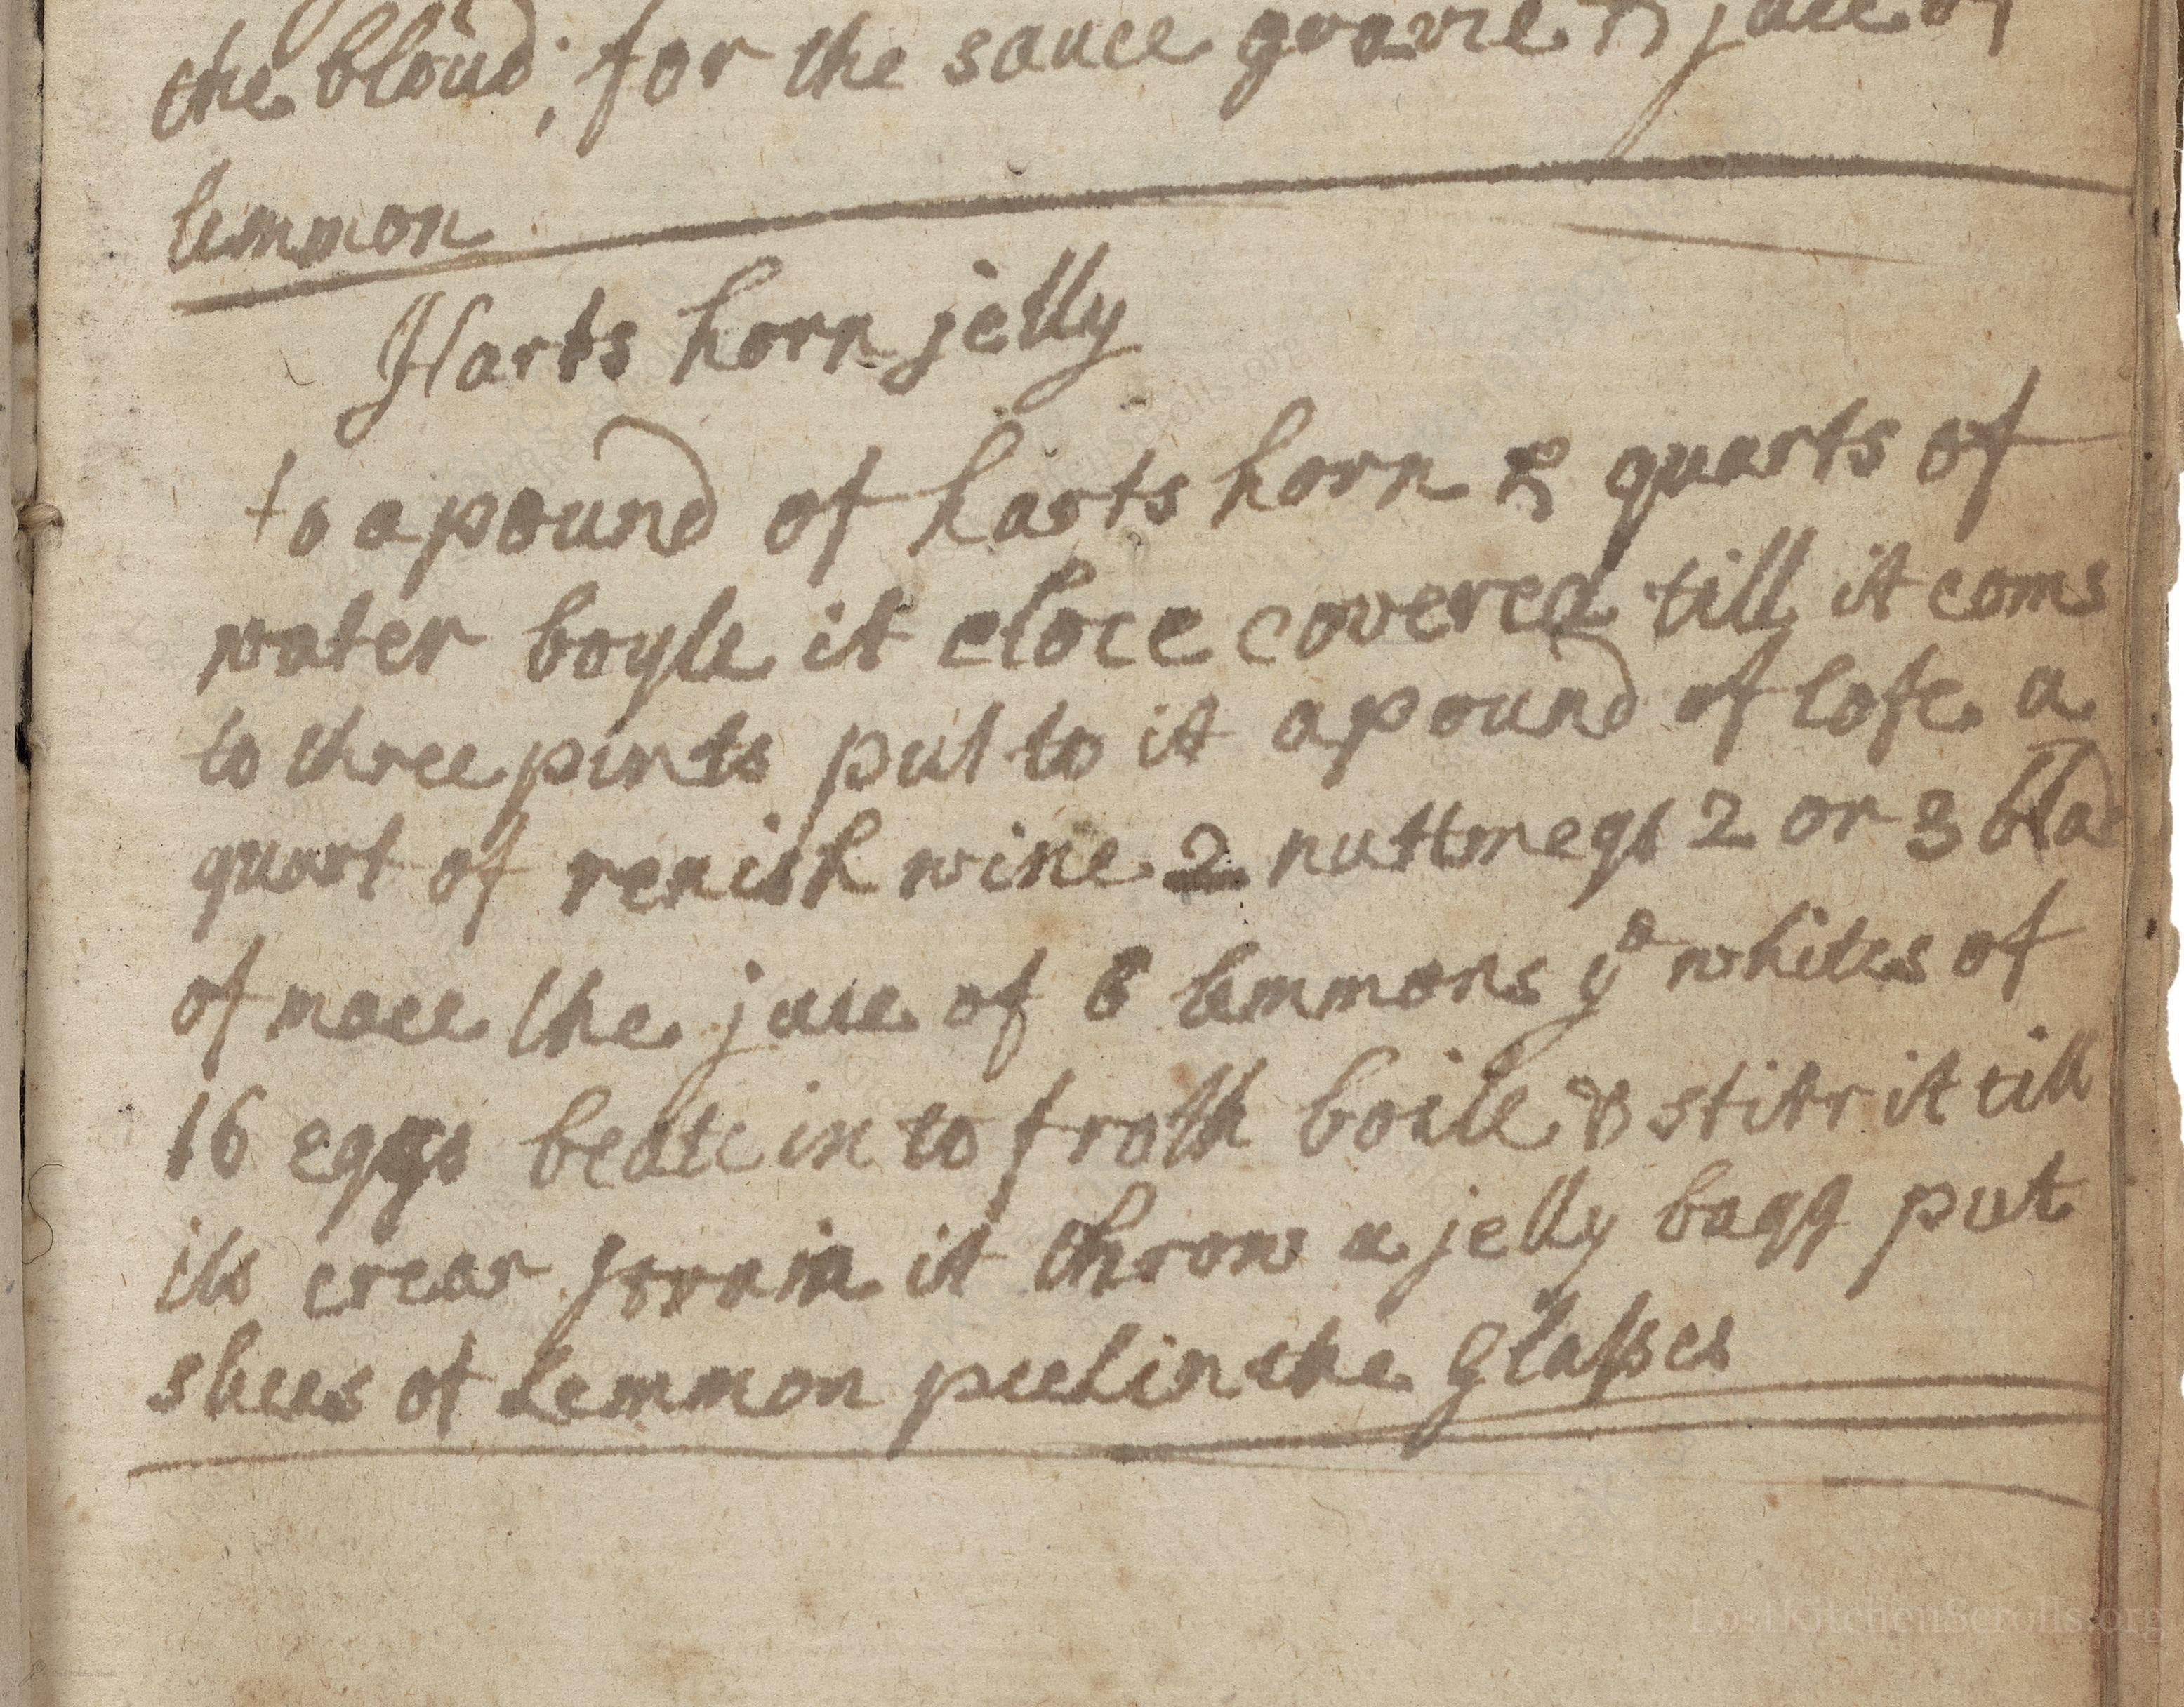 the bloud; for the sauce gravie & juce of
lemmon
Harts horn jelly
to a pound of harts horn quarts of
water boyle it cloce covered till it coms
to three pints put to it a pound of lofe a
quart of renish wine 2 nuttmegs 2 or 3 blad
of mace the juce of 8 lemmons ye whites of
16 eggs beate in to froth boile & stirr it till
its crear it throw a jelly bagg put
slices of lemmon peel in the Glasses
LostKitchenScrolls.org